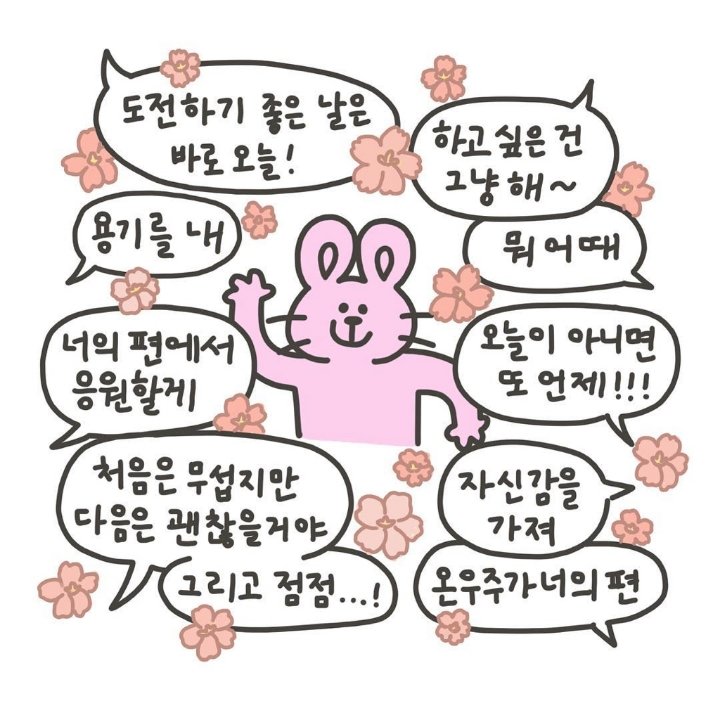 도전하기 좋은 날은
바로 오늘!
하고 싶은 건
그냥 해~
용기를 내
뭐 어때
너의 편에서
응원할게
오늘이 아니면
또 언제!!!
처음은 무섭지만
다음은 괜찮을거야
그리고 점점...!
자신감을
가져
온우주가 너의 편